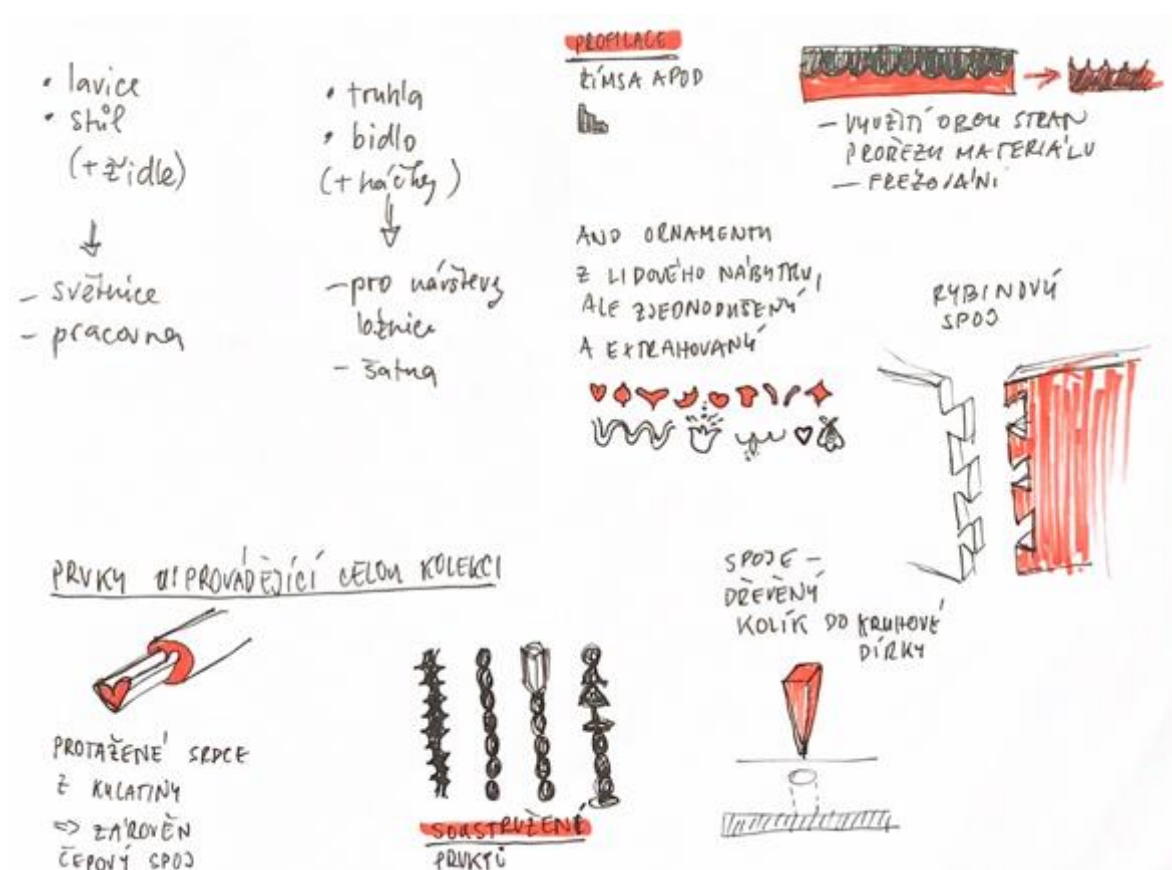 • lavice
• stůl
(+ židle)
- světnice
- pracovna
• truhla
• bidlo
(+ háčky)
- pro návštevy
ložnice
- šatna
PROFILACE
ŘÍMSA APOD
- VYUŽITÍ OBOU STRAN
PROŘEZU MATERIÁLU
- FRÉZOVÁNÍ
ANO ORNAMENTU
Z LIDOVÉHO NÁBYTKU,
ALE ZJEDNODUŠENÝ
A EXTRAHOVANÝ
RYBINOVÝ
SPOJ
PRVKY PROVÁDĚJÍCÍ CELOU KOLEKCI
PROTAŽENÉ SRDCE
Z KULATINY
=> ZÁROVĚN
ČEPOVÝ SPOJ
SOUSTRUŽENÉ
PRVKY
SPOJE -
DŘEVĚNÝ
KOLÍK DO KRUHOVÉ
DÍRKY